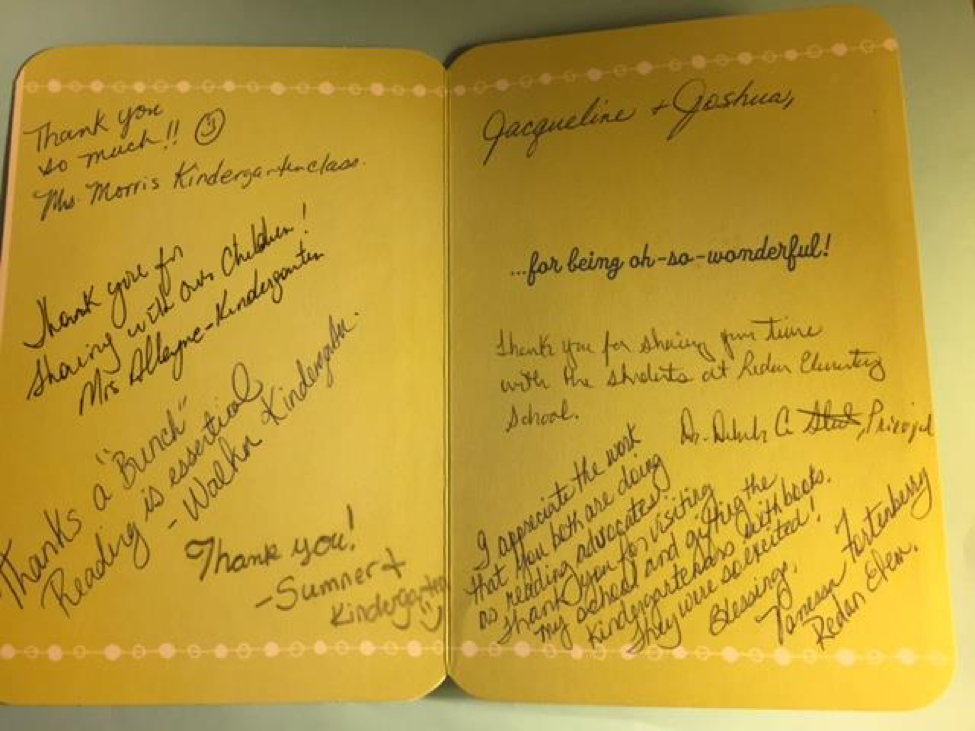 Thank you
so much!! ☺
Ms. Morris Kindergarten class.
Thank you for
sharing with our children!
Mrs Alleyne-Kindergarten
Thanks a "Bunch"
Reading is essential
- Walker Kindergarten.
Thank you!
-Sumner +
Kindergarten
Jacqueline + Joshua,
...for being oh-so-wonderful!
Thank you for sharing your time
with the students at Redan Elementary
School.
Dr. A. Principal
I appreciate the work
that you both are doing
as reading advocates.
Thank you for visiting
my school and gifting the
kindergarteners with books.
They were so excited!
Blessings,
Vanessa Fortenberry
Redan Elem.